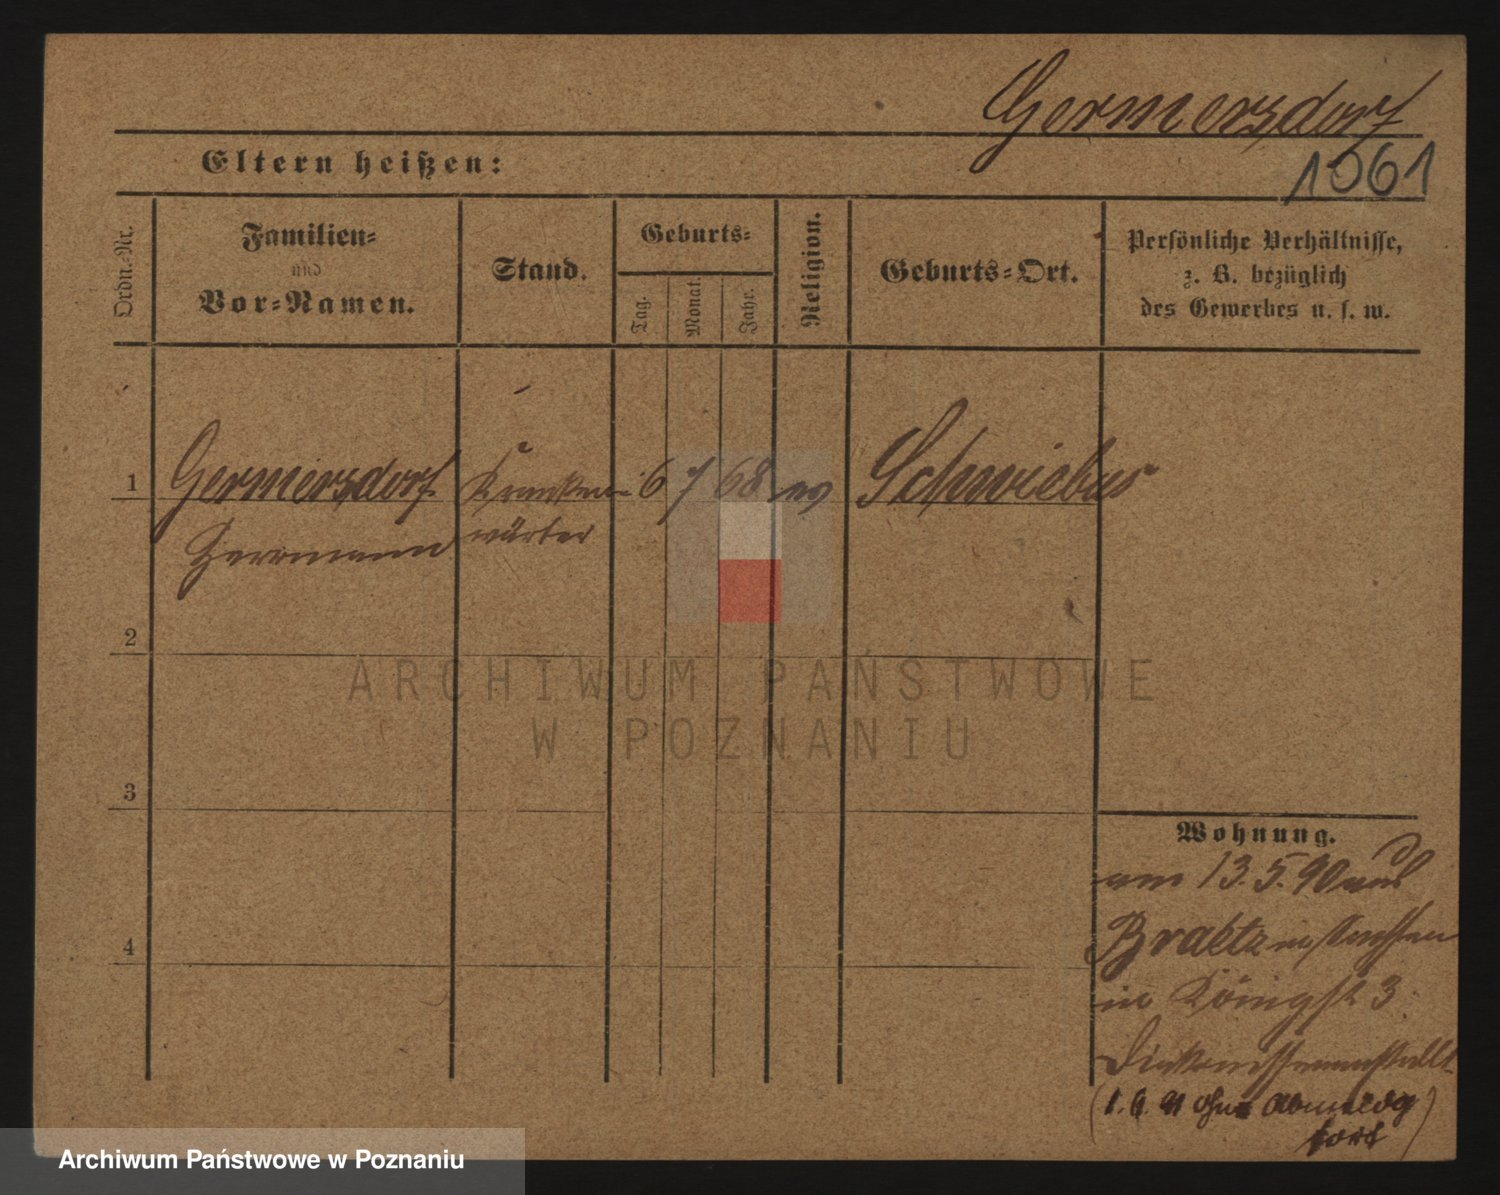 Germersdorf
1061
Eltern heißen:
Ordn.-Nr.
Familien-
und
Vor-Namen.
Stand.
Geburts-
Tag.
Monat.
Jahr.
Religion.
Geburts-Ort.
Persönliche Verhältnisse,
z. B. bezüglich
des Gewerbes u. s. w.
1 Germersdorf Kranken- 6 7 68 ev Schwiebus
Herrmann wärter
2
ARCHIWUM PAŃSTWOWE
W POZNANIU
3
Wohnung.
am 13.5.90 aus
4
Braetz
in Königstr 3
Diakonissenanstalt
(1. 6. 91 ohne Abmeldg
fort)
Archiwum Państwowe w Poznaniu